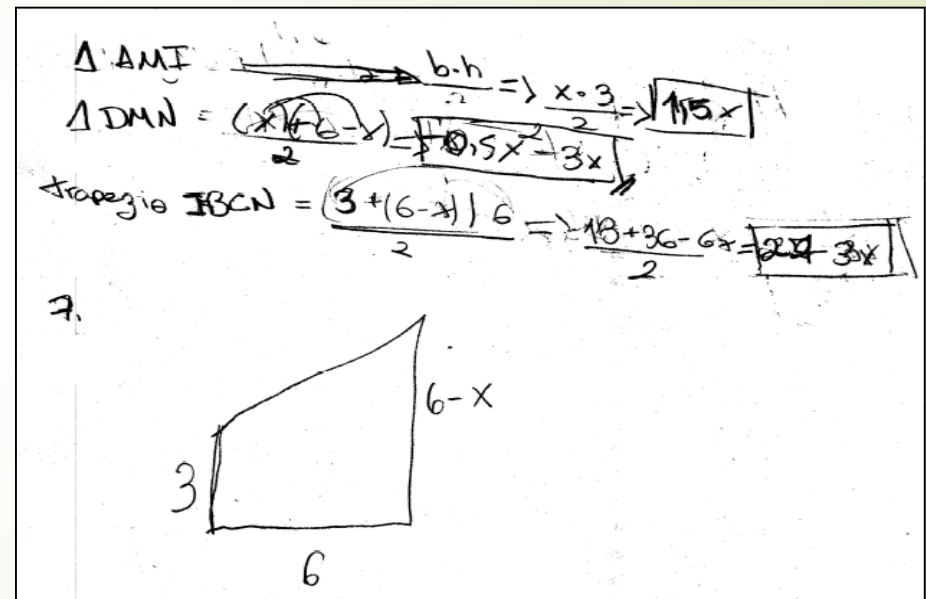 Δ AMI → b.h/2 => x.3/2 => 1,5x
Δ DMN = (x)(+6-x)/2 => 0,5x² - 3x
trapezio IBCN = (3+(6-x)) 6/2 => 18+36-6x/2 = 3x
7.
6-x
3
6